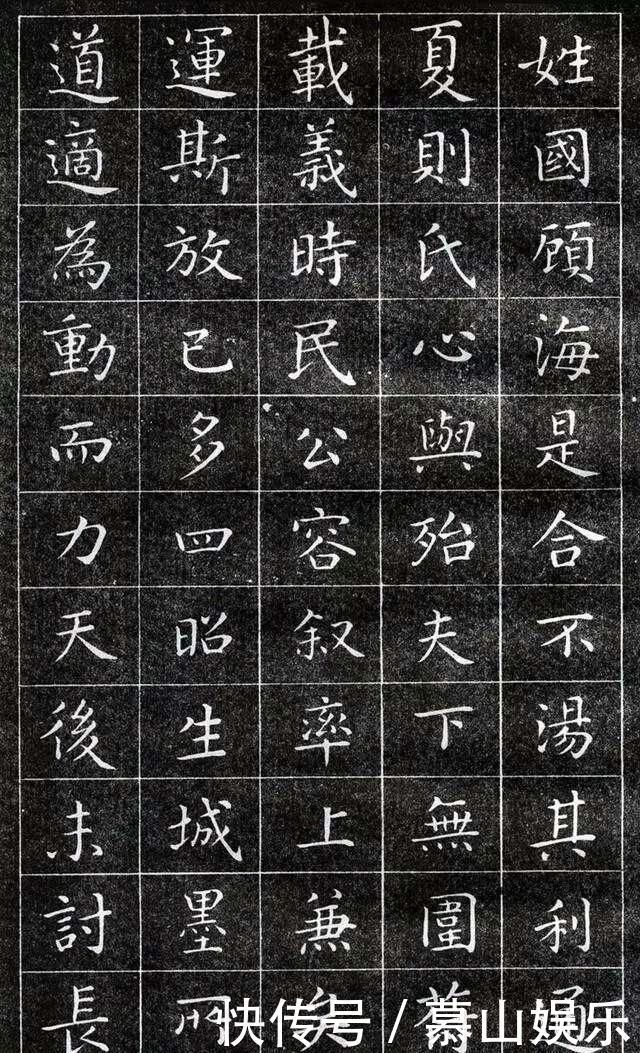 姓國顧海是合不湯其利通
夏則氏心與殆夫下無圍
載義時民公容叙率上兼矣
運斯放已多四昭生城墨
道適為動而力天後未討長
快传号 / 慕山娱乐